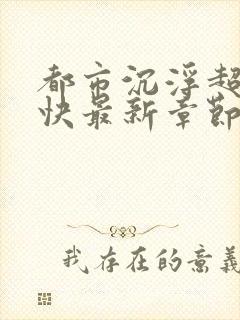 都市沉浮超
快最新章节
我存在的意义